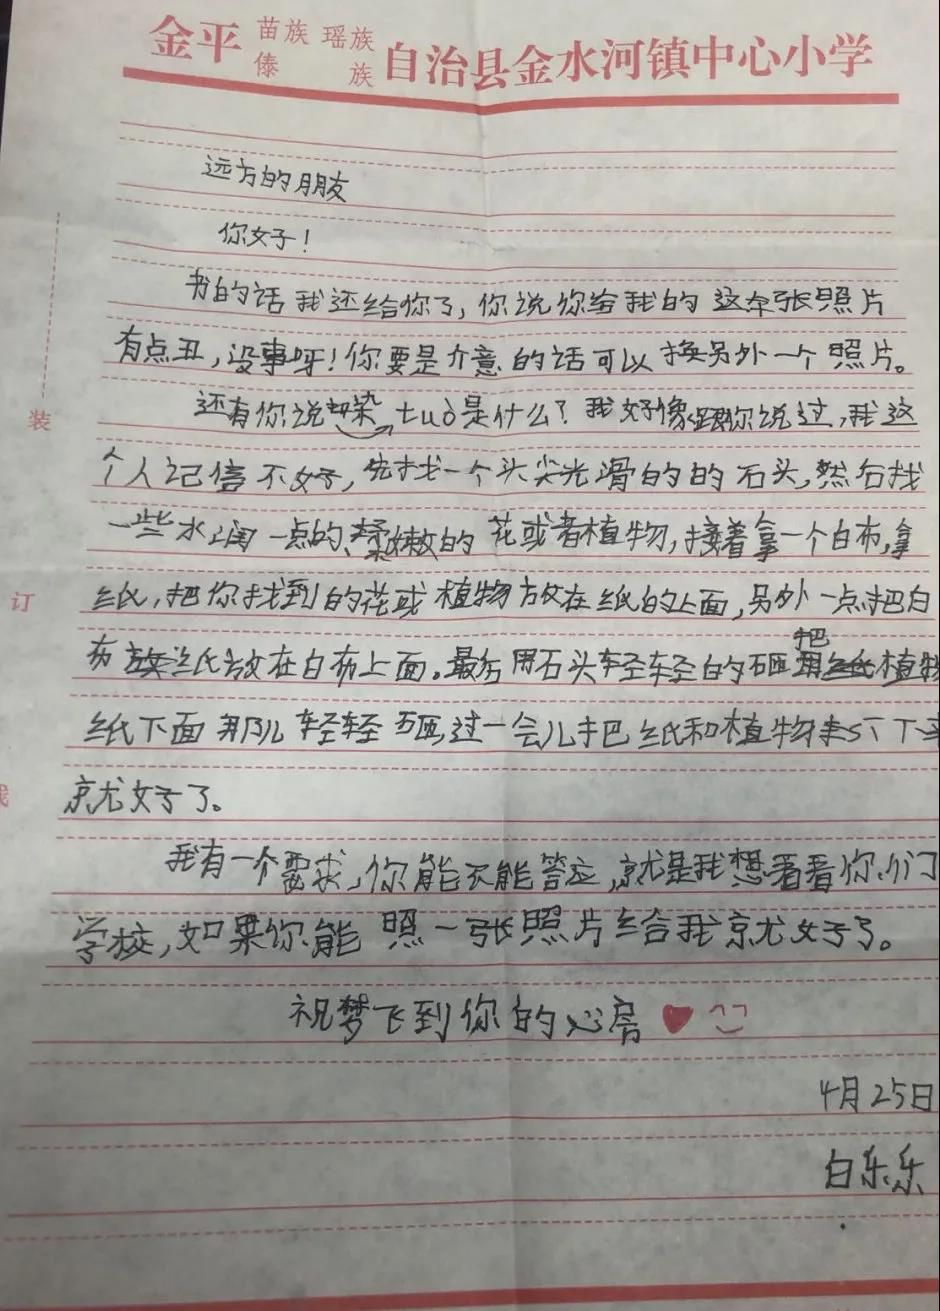 金平苗族瑶族傣族自治县金水河镇中心小学
远方的朋友
你好!
书的话我还给你了,你说你给我的这张照片
有点丑,没事呀!你要是介意的话可以换另外一个照片。
还有你说染tuò是什么?我好像跟你说过,我这
个人记信不好,先找一个头尖光滑的的石头,然后找
一些水润一点的、柔嫩的花或者植物,接着拿一个白布,拿
纸,把你找到的花或植物放在纸的上面,另外一点把白
布纸放在白布上面。最后用石头轻轻的砸把植物
纸下面那儿轻轻砸,过一会儿把纸和植物下来
就好了。
我有一个要求,你能不能答应,就是我想看看你们
学校,如果你能照一张照片给我就好了。
祝梦飞到你的心房
4月25日
白乐乐
装
订
线